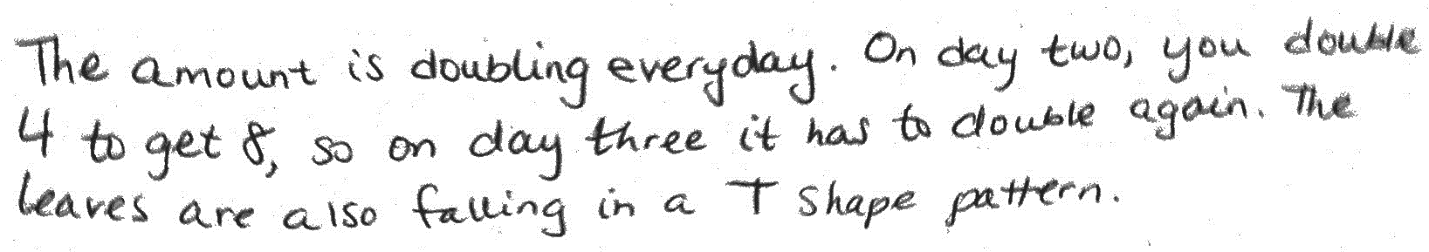 The amount is doubling everyday. On day two, you double
4 to get 8, so on day three it has to double again. The
leaves are also falling in a T shape pattern.